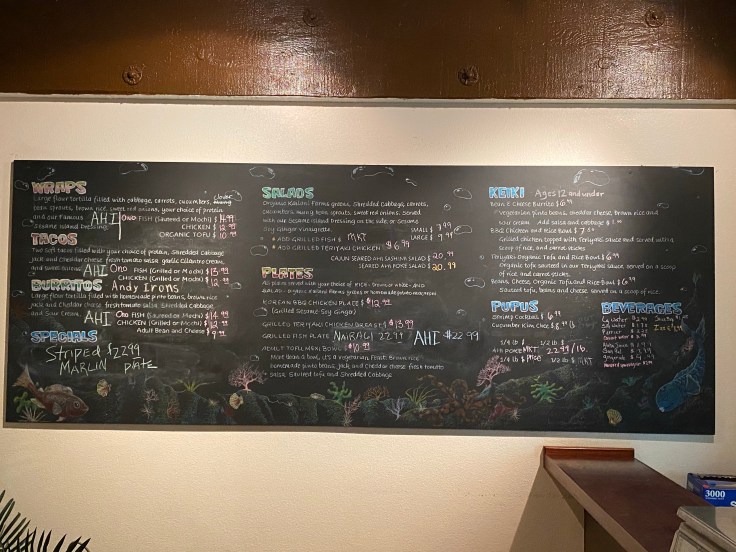 WRAPS
Large flour tortilla filled with cabbage, carrots, cucumbers, clover
bean sprouts, brown rice, sweet red onions, your choice of protein
and our Famous
Sesame Island Dressing
AHI Ono FISH (Sauteed or Mochi) $14.99
CHICKEN $12.99
ORGANIC TOFU $10.99
TACOS
Two soft tacos filled with your choice of protein, Shredded Cabbage
Jack and Cheddar cheese fresh tomato salsa, garlic cilantro cream,
and sweet onions
AHI Ono FISH (Grilled or Mochi) $13.99
CHICKEN (Grilled or Mochi) $12.99
BURRITOS Andy Irons
Large flour tortilla filled with homemade pinto beans, brown rice
Jack and Cheddar Cheese fresh tomato salsa. Shredded cabbage
and Sour Cream.
AHI Ono FISH (Sauteed or Mochi) $14.99
CHICKEN (Grilled or Mochi) $12.99
Adult Bean and Cheese $9.99
SPECIALS
Striped $22.99
MARLIN plate
SALADS
Organic Kailani Farms greens, Shredded Cabbage, carrots,
cucumbers, mung bean sprouts, sweet red onions. Served
with our sesame island dressing on the side or sesame
Soy Ginger vinaigrette.
SMALL $7.99
LARGE $9.99
ADD GRILLED FISH $ MKT
ADD GRILLED TERIYAKI CHICKEN $6.99
CAJUN SEARED AHI SASHIMI SALAD $20.99
SEARED AHI POKE SALAD $20.99
PLATES
All plates served with your choice of RICE - brown or white - AND
SALAD - organic Kailani Farms greens or homemade potato macaroni
KOREAN BBQ CHICKEN PLATE $12.99
(Grilled Sesame-Soy Ginger)
GRILLED TERIYAKI CHICKEN BREAST $13.99
GRILLED FISH PLATE NAIRAGI 22.99 AHI $22.99
ADULT TOFU MSKI BOWL $10.99
More than a bowl, it's a vegetarian feast! Brown rice
homemade pinto beans, jack and cheddar cheese fresh tomato
salsa. Sauteed tofu and Shredded Cabbage
KEIKI Ages 12 and under
Bean & Cheese Burrito $6.99
Vegetarian pinto beans, cheddar cheese, brown rice and
sour cream. Add salsa and cabbage
BBQ Chicken and Rice Bowl $7
Grilled chicken topped with Teriyaki Sauce and served with a
scoop of rice, and carrot sticks.
Teriyaki Organic Tofu and Rice Bowl $6.99
Organic tofu sauteed in our Teriyaki sauce, served on a scoop
of rice and carrot sticks.
Beans, Cheese, Organic Tofu and Rice Bowl $6.99
Sauteed tofu, beans and cheese served on a scoop of rice.
PUPUS
Shrimp Cocktail $6.99
Cucumber Kim Chee $8.99 lb
1/4 lb $ 1/2 lb $
AHI POKE MKT 22.99/lb.
1/4 lb $ 1/2 lb $ MKT
BEVERAGES
3000